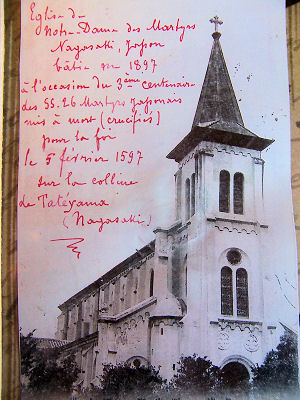 Église de
Notre-Dame des Martyrs
Nagasaki, Japon
bâtie en 1897
à l'occasion du 3ème Centenaire
des SS. 26 Martyrs Japonais
mis à mort (crucifiés)
pour la foi
le 5 février 1597
sur la colline
de Tatéyama
(Nagasaki)